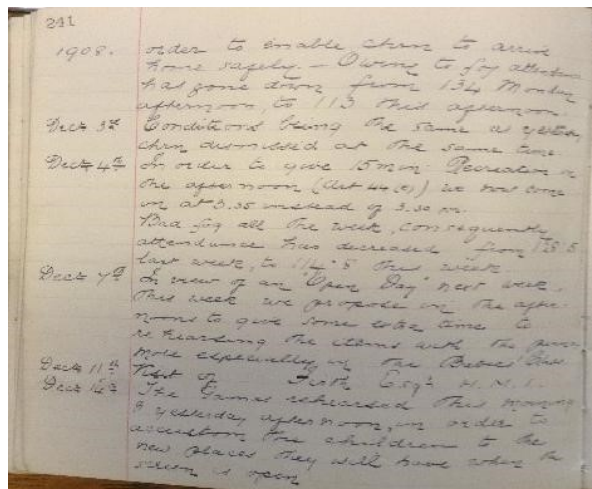 241
1908. order to enable chrn to arrive
home safely. — Owing to fog attendance
has gone down from 134 Monday
afternoon, to 113 this afternoon.
Dec 3rd Conditions being the same as yesterday
chrn dismissed at the same time.
Dec 4th In order to give 15 min. Recreation in
the afternoon (Art 44 ) we now come
in at 3.35 instead of 3.30 
Bad fog all the week, consequently
attendance has decreased from 125.5
last week, to 114.8 this week
Dec 7th In view of an "Open Day" next week.
this week we propose in the after-
noons to give some extra time to
rehearsing the items with the
more especially in the Babies' Class.
Dec 11th Visit of Firth Esqr H.M.I.
Dec The Games rehearsed this morning
& yesterday afternoon, in order to
accustom the children to the
new places they will have when the
screen is open